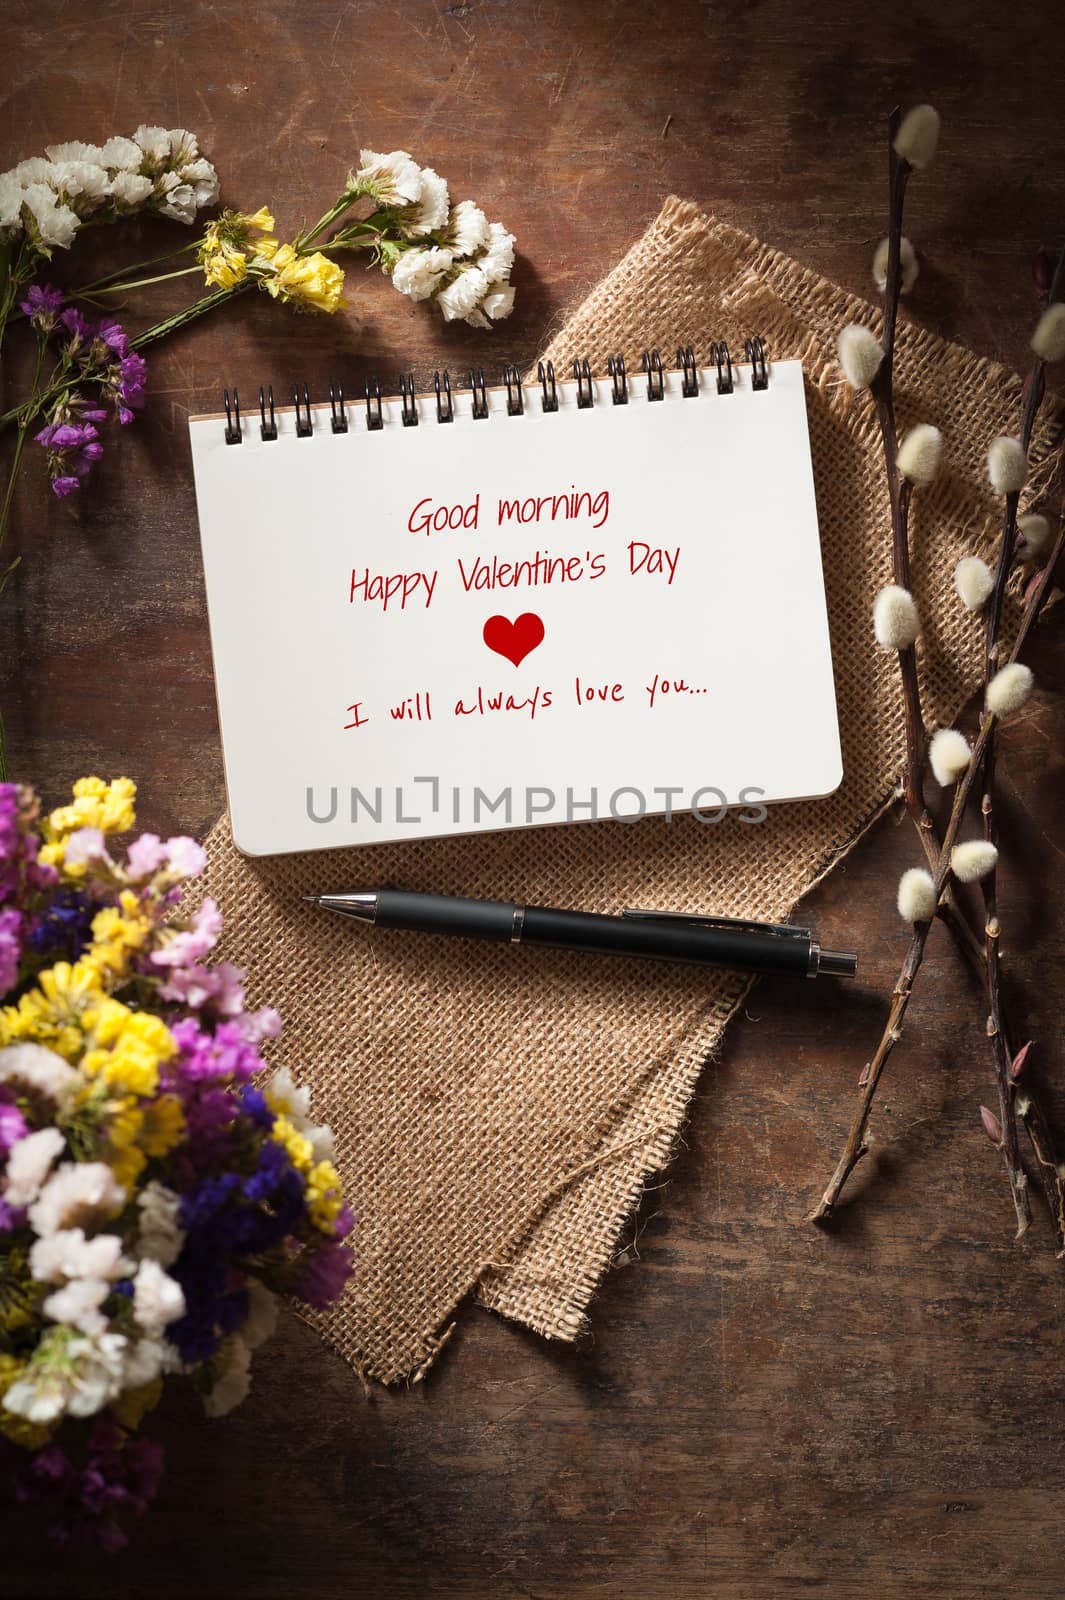 Good morning
Happy Valentine's Day
I will always love you...
UNLIMPHOTOS